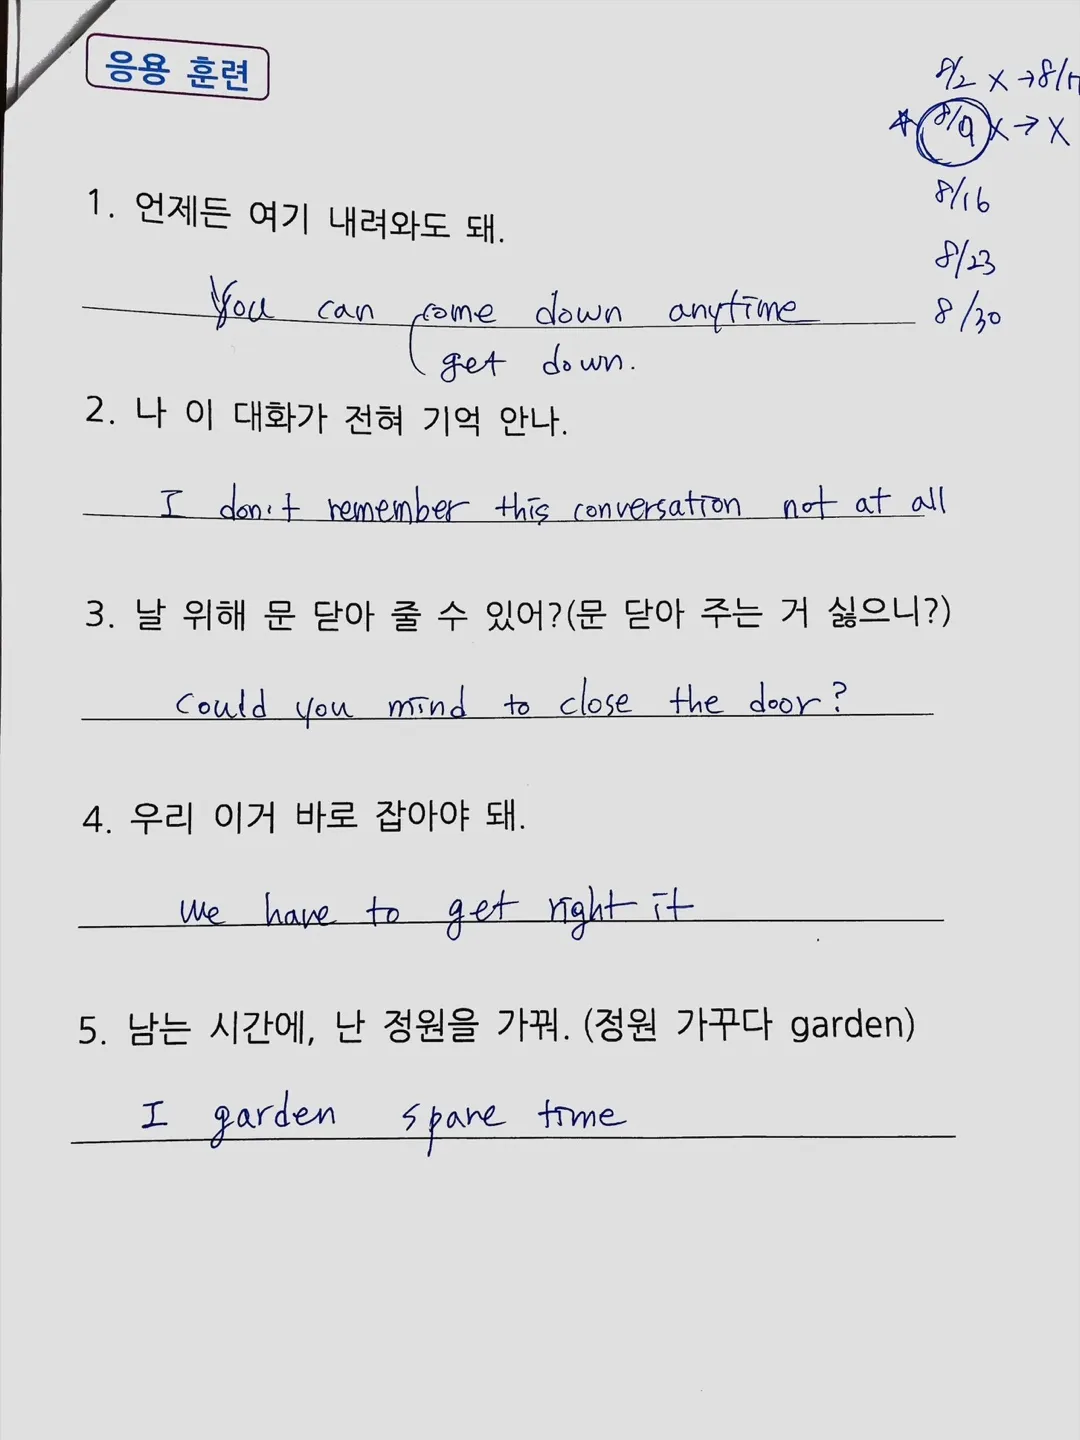 응용 훈련
8/2 X →8/17
☆ 8/9 X → X
8/16
8/23
8/30
1. 언제든 여기 내려와도 돼.
You can come down anytime
get down.
2. 나 이 대화가 전혀 기억 안나.
I don't remember this conversation not at all
3. 날 위해 문 닫아 줄 수 있어?(문 닫아 주는 거 싫으니?)
Could you mind to close the door?
4. 우리 이거 바로 잡아야 돼.
We have to get right it
5. 남는 시간에, 난 정원을 가꿔. (정원 가꾸다 garden)
I garden spare time